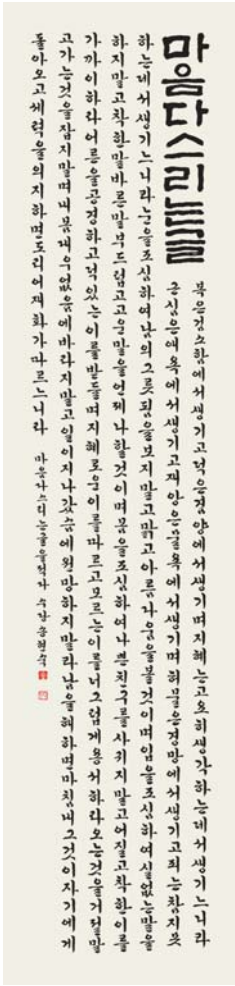 마음다스리는글
복은검소함에서생기고덕은겸양에서생기며지혜는고요히생각하는데서생기느니라
근심은애욕에서생기고재앙은물욕에서생기며허물은경망에서생기고죄는참지못
하는데서생기느니라눈을조심하여남의그릇됨을보지말고맑고아름다움을볼것이며입을조심하여실없는말을
하지말고착한말바른말부드럽고고운말을언제나할것이며몸을조심하여나쁜친구를사귀지말고어질고착한이를
가까이하라어른을공경하고덕있는이를받들며지혜로운이를따르고모르는이를너그럽게용서하라오는것을거절말
고가는것을잡지말며내몸대우없음에바라지말고일이지나갔음에원망하지말라남을해하면마침내그것이자기에게
돌아오고세력을의지하면도리어재화가따르느니라 마음다스리는글을적다 수강 송현숙